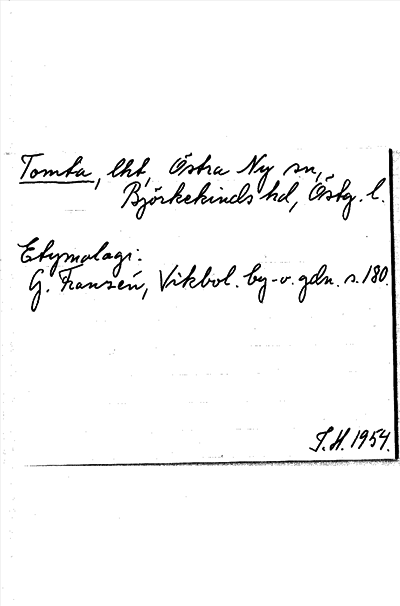 Tomta, lht, Östra Ny sn,
Björkekinds hd, Östg. l.
Etymologi:
G. Franzén, Vikbol. by- o. gdn. s. 180.
J.H. 1954.